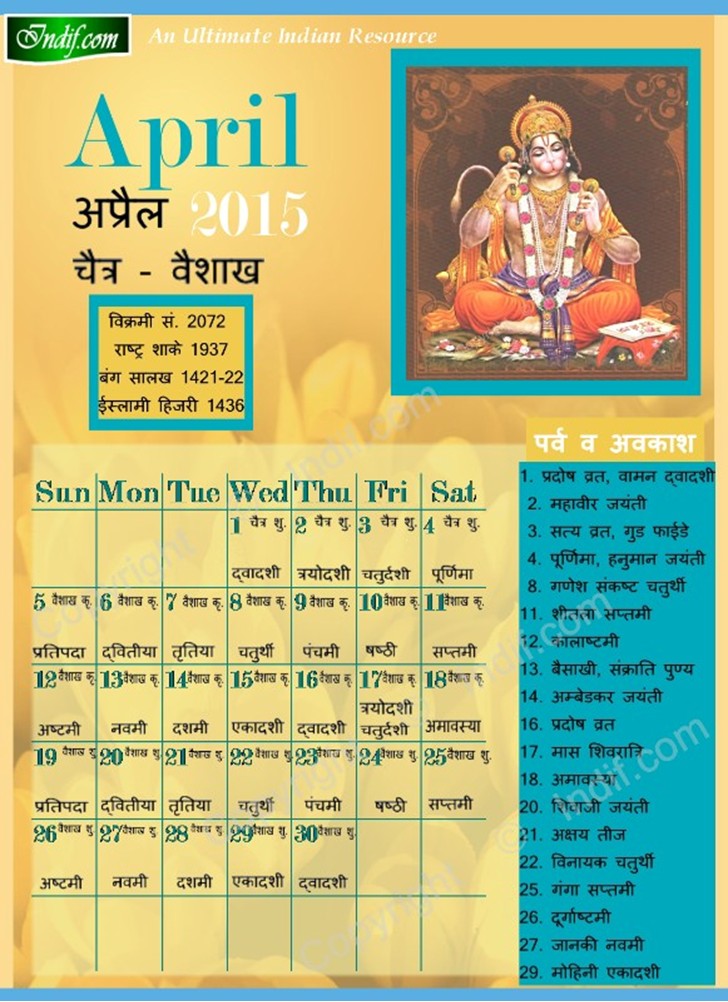 Indif.com
An Ultimate Indian Resource
April
अप्रैल 2015
चैत्र - वैशाख
विक्रमी सं. 2072
राष्ट्र शाके 1937
बंग सालख 1421-22
ईस्लामी हिजरी 1436
Sun Mon Tue Wed Thu Fri Sat
1 चैत्र शु. 2 चैत्र शु. 3 चैत्र शु. 4 चैत्र शु.
द्वादशी त्रयोदशी चतुर्दशी पूर्णिमा
5 वैशाख कृ. 6 वैशाख कृ. 7 वैशाख कृ. 8 वैशाख कृ. 9 वैशाख कृ. 10 वैशाख कृ. 11 वैशाख कृ.
प्रतिपदा द्वितीया तृतिया चतुर्थी पंचमी षष्ठी सप्तमी
12 वैशाख कृ. 13 वैशाख कृ. 14 वैशाख कृ. 15 वैशाख कृ. 16 वैशाख कृ. 17 वैशाख कृ. 18 वैशाख कृ.
अष्टमी नवमी दशमी एकादशी द्वादशी त्रयोदशी चतुर्दशी अमावस्या
19 वैशाख शु. 20 वैशाख शु. 21 वैशाख शु. 22 वैशाख शु. 23 वैशाख शु. 24 वैशाख शु. 25 वैशाख शु.
प्रतिपदा द्वितीया तृतिया चतुर्थी पंचमी षष्ठी सप्तमी
26 वैशाख शु. 27 वैशाख शु. 28 वैशाख शु. 29 वैशाख शु. 30 वैशाख शु.
अष्टमी नवमी दशमी एकादशी द्वादशी
पर्व व अवकाश
1. प्रदोष व्रत, वामन द्वादशी
2. महावीर जयंती
3. सत्य व्रत, गुड फाईडे
4. पूर्णिमा, हनुमान जयंती
8. गणेश संकष्ट चतुर्थी
11. शीतला सप्तमी
12. कालाष्टमी
13. बैसाखी, संक्राति पुण्य
14. अम्बेडकर जयंती
16. प्रदोष व्रत
17. मास शिवरात्रि
18. अमावस्या
20. शिवाजी जयंती
21. अक्षय तीज
22. विनायक चतुर्थी
25. गंगा सप्तमी
26. दुर्गाष्टमी
27. जानकी नवमी
29. मोहिनी एकादशी
Copyright © Indif.com
Copyright © Indif.com
Copyright © Indif.com